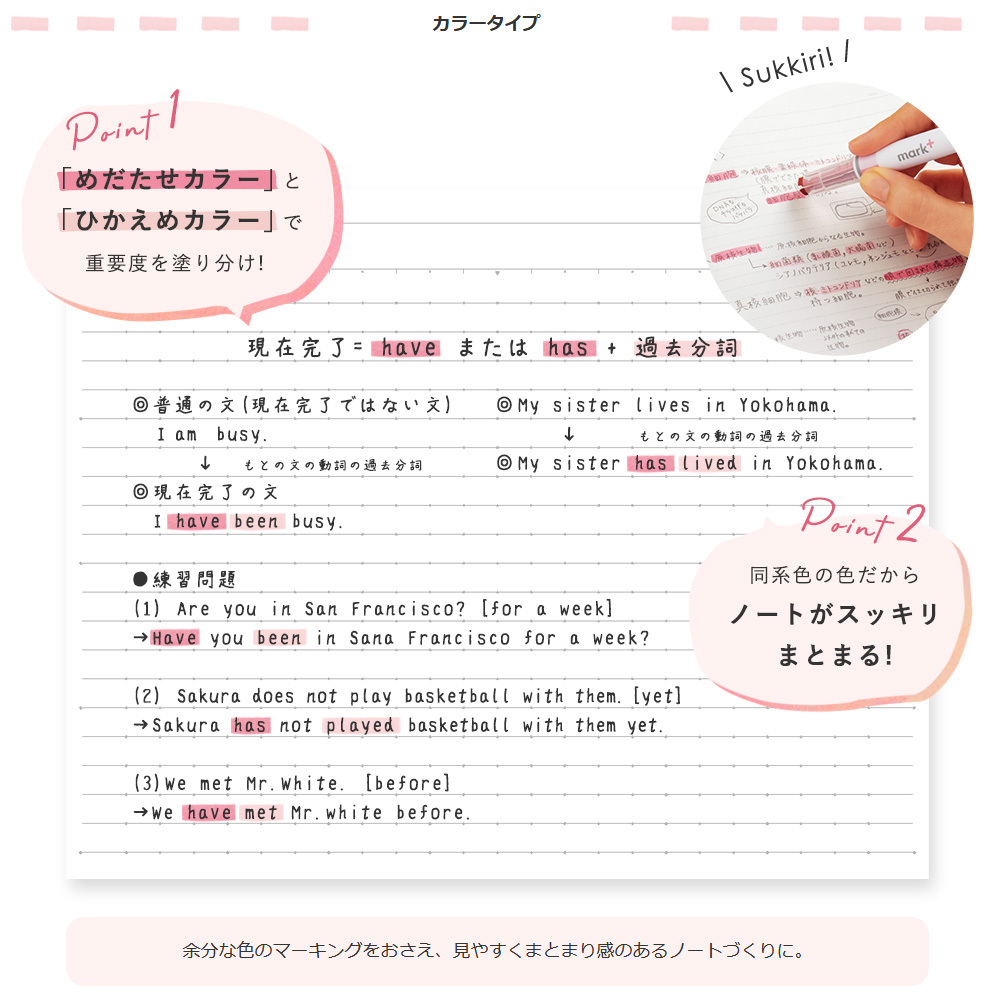 カラータイプ
\ Sukkiri! /
Point 1
「めだたせカラー」と
「ひかえめカラー」で
重要度を塗り分け!
mark+
現在完了= have または has + 過去分詞
◎普通の文(現在完了ではない文)
I am busy.
↓ もとの文の動詞の過去分詞
◎現在完了の文
I have been busy.
◎My sister lives in Yokohama.
↓ もとの文の動詞の過去分詞
◎My sister has lived in Yokohama.
●練習問題
(1) Are you in San Francisco? [for a week]
→Have you been in Sana Francisco for a week?
(2) Sakura does not play basketball with them. [yet]
→Sakura has not played basketball with them yet.
(3)We met Mr.White. [before]
→We have met Mr.white before.
Point 2
同系色の色だから
ノートがスッキリ
まとまる!
余分な色のマーキングをおさえ、見やすくまとまり感のあるノートづくりに。